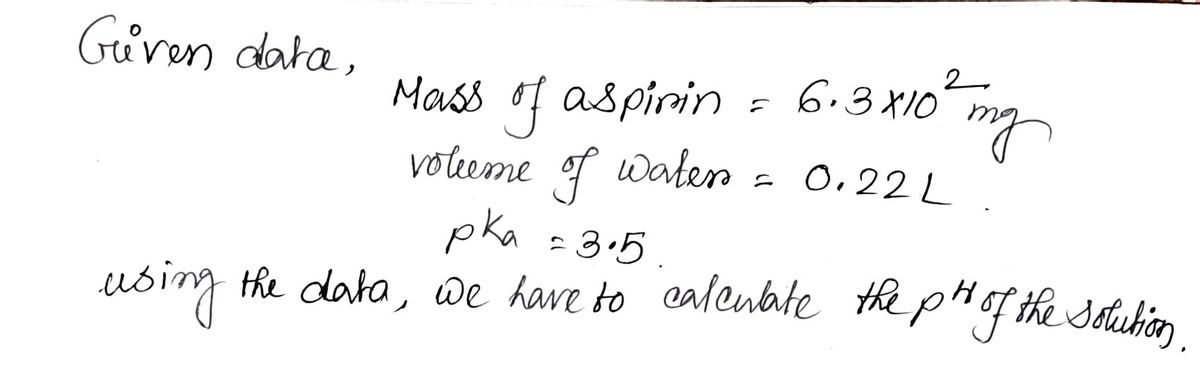 Given data,
Mass of aspirin = 6.3 X10² mg
volume of water = 0.22 L.
pKa = 3.5.
using the data, we have to calculate the pH of the solution.